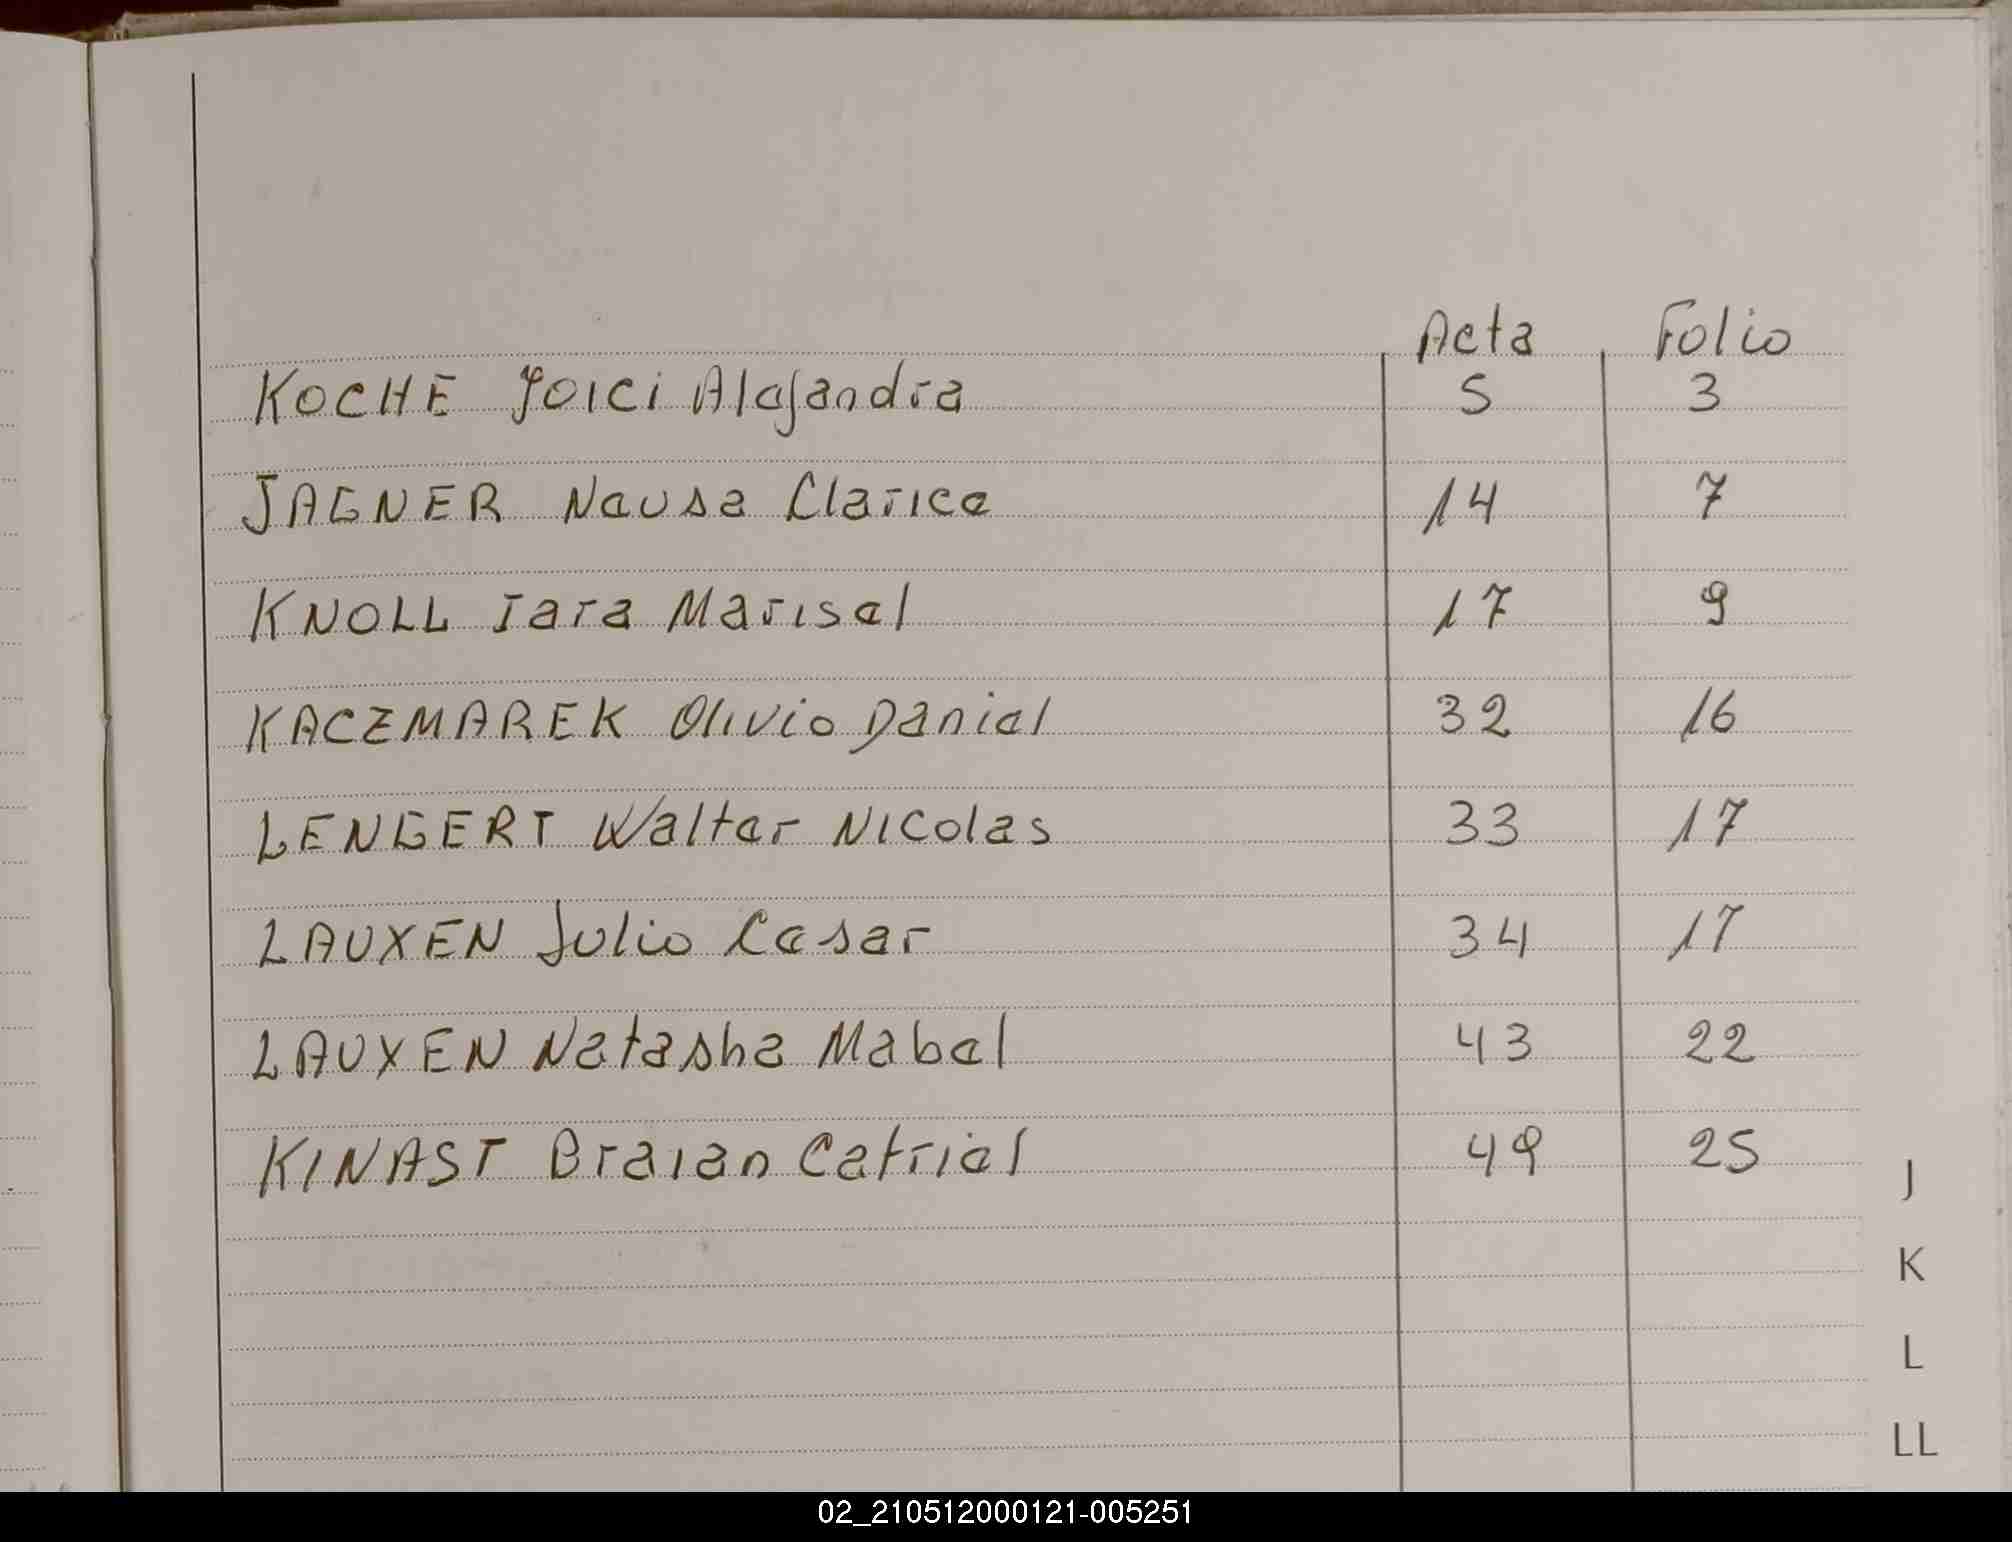 Acta Folio
KOCHE Joici Alejandra 5 3
JAGNER Neusa Clarice 14 7
KNOLL Iara Marisel 17 9
KACZMAREK Olivio Daniel 32 16
LENGERT Walter Nicolas 33 17
LAUXEN Julio Cesar 34 17
LAUXEN Natasha Mabel 43 22
KINAST Braian Catriel 49 25
J
K
L
LL
02_210512000121-005251